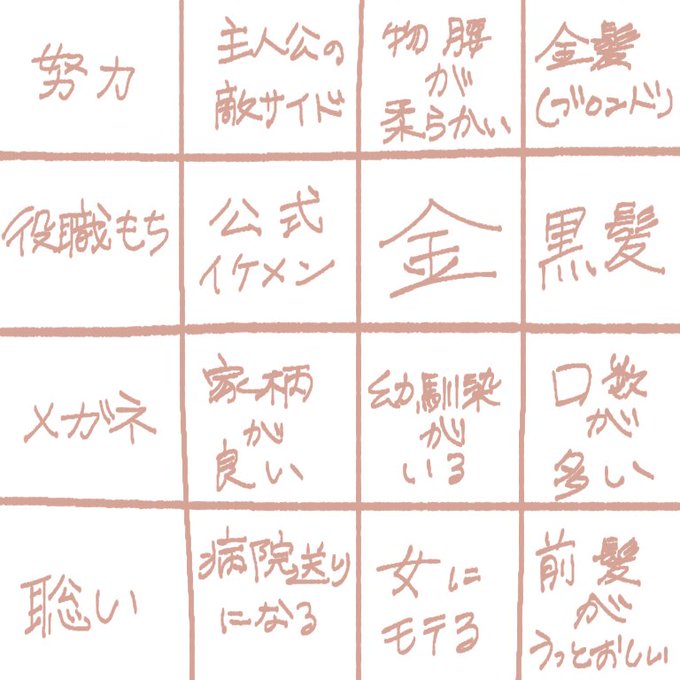 努力
主人公の
敵サイド
物腰
が
柔らかい
金髪
(ブロンド)
役職もち
公式
イケメン
金
黒髪
メガネ
家柄
が
良い
幼馴染
が
いる
口数
が
多い
聡い
病院送り
になる
女に
モテる
前髪
が
うっとおしい